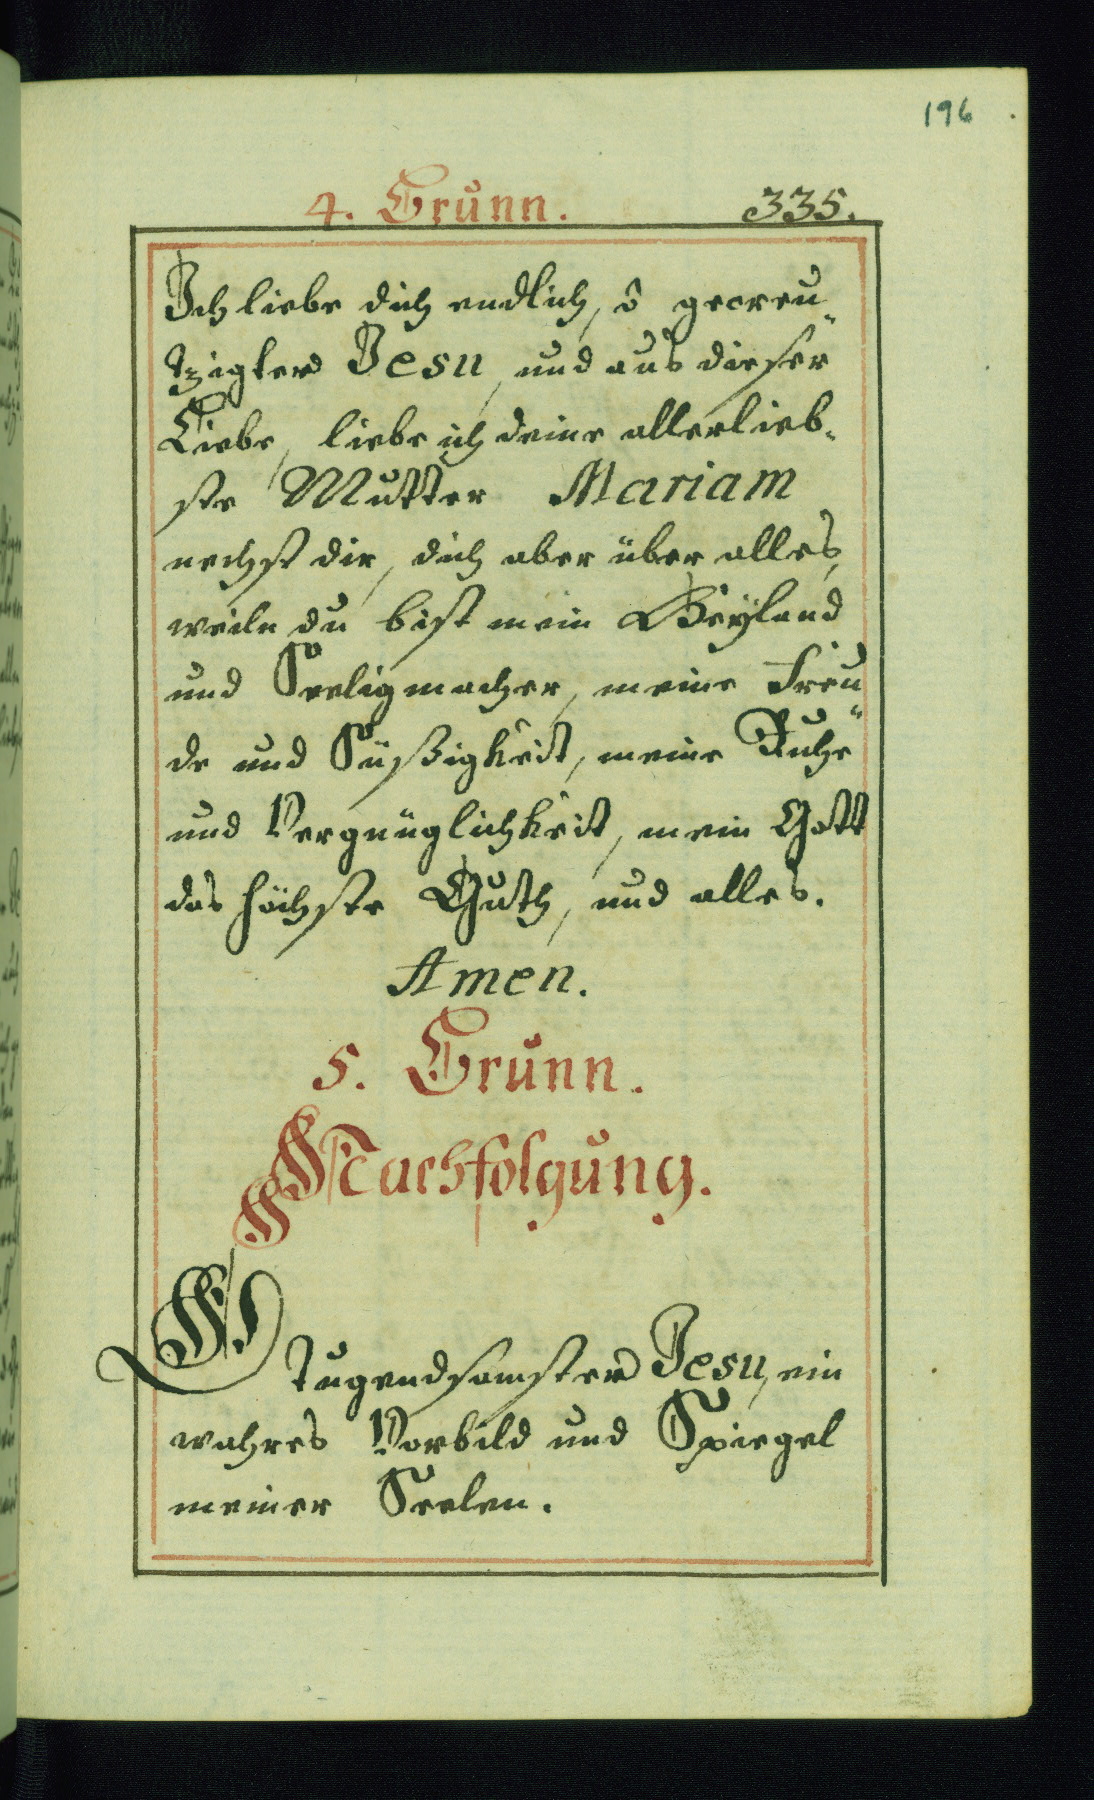 196
4. Brunn. 335.
Ich liebe dich endlich, ô gecreu„
tzigter Jesu, und aus dieser
Liebe, liebe ich deine allerlieb„
ste Mutter Mariam
nechst dir, dich aber über alles,
weiln du bist mein Heÿland
und Seeligmacher, meine Freu„
de und Süßigkeit, meine Ruhe
und Vergnüglichkeit, mein Gott
das höchste Guth, und alles.
Amen.
5. Brunn.
Nachfolgung.
O
Tugendsamster Jesu, ein
wahres Vorbild und Spiegel
meiner Seelen.